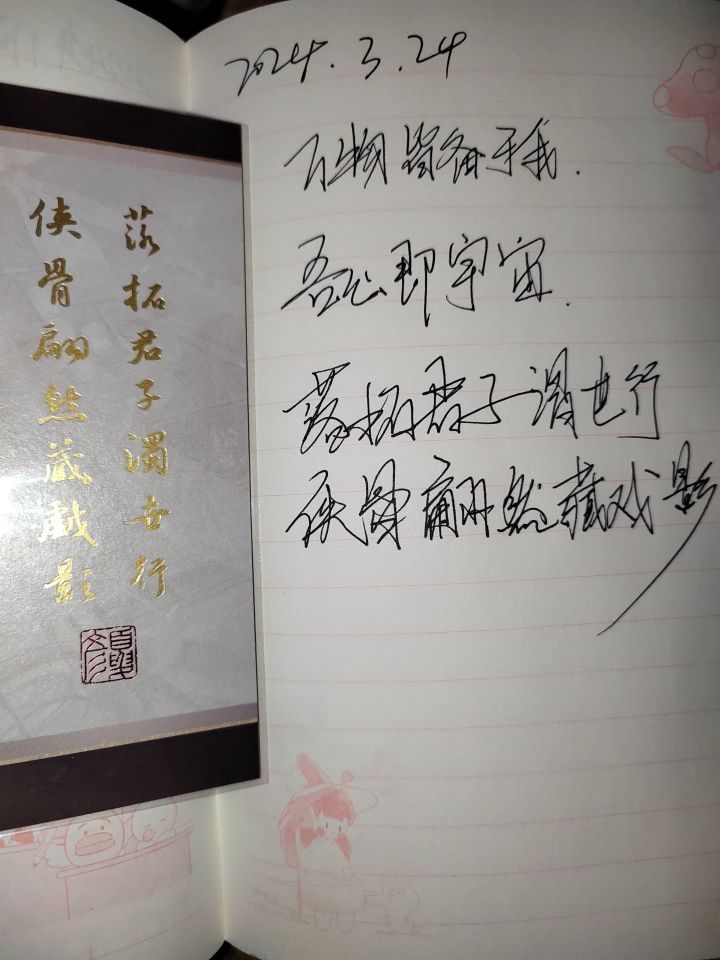 落拓君子濁世行
侠骨翩然藏戲影
2024.3.24
万物皆备于我.
吾心即宇宙.
落拓君子濁世行
侠骨翩然藏戏影